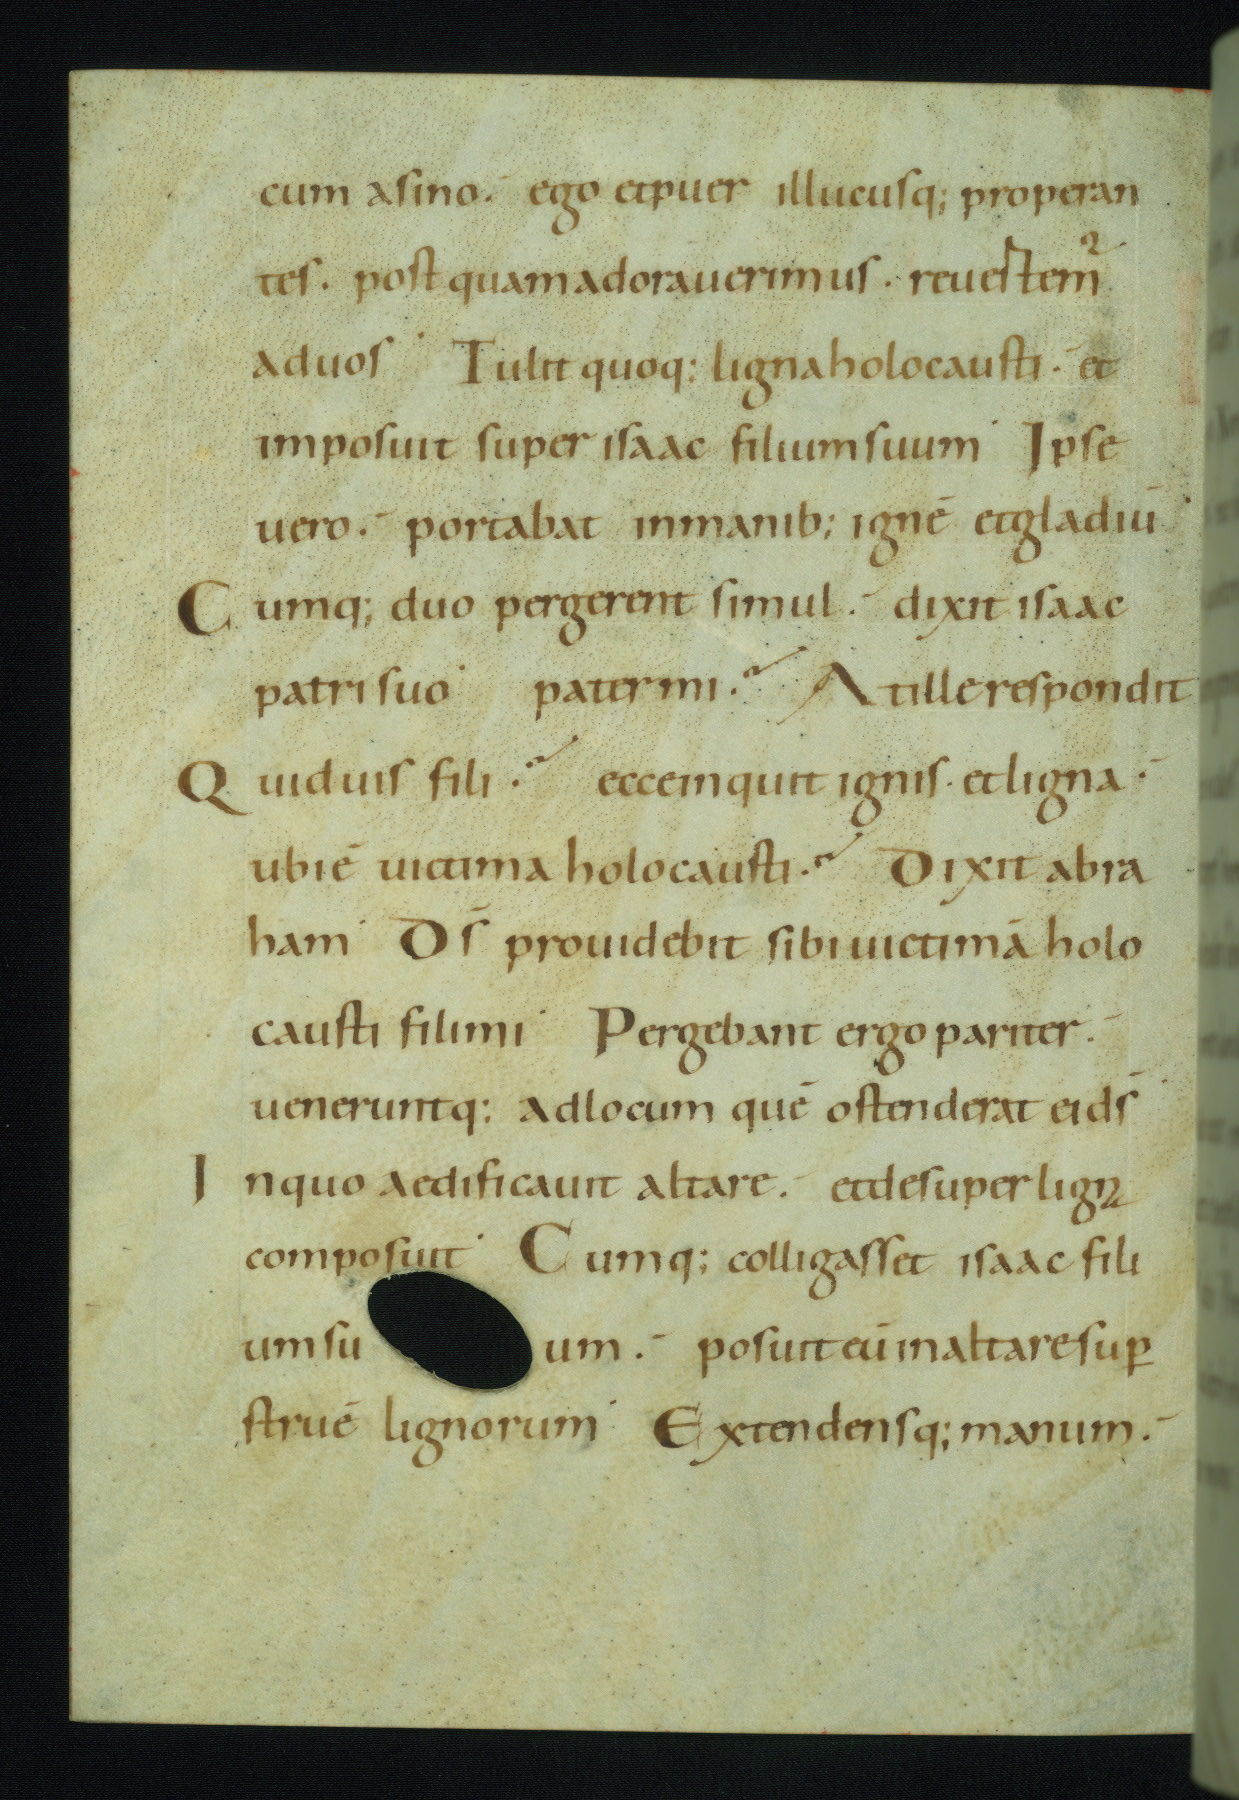 cum asino. ego et puer illucusq; properan
tes. post quam adorauerimus. reuertem̅
ad uos Tulit quoq: ligna holocausti. et
imposuit super isaac filium suum Ipse
uero. portabat in manib; ignē et gladiū
Cumq; duo pergerent simul. dixit isaac
patri suo pater mi. At ille respondit
Quid uis fili. ecce inquit ignis. et ligna.
ubi ē uictima holocausti. Dixit abra
ham Ds̄ prouidebit sibi uictimā holo
causti fili mi Pergebant ergo pariter.
ueneruntq: ad locum quē ostenderat ei ds̄
In quo aedificauit altare. et desuper ligna
composuit Cumq; colligasset isaac fili
um su um. posuit eū in altare sup̄
struē lignorum Extendensq; manum.